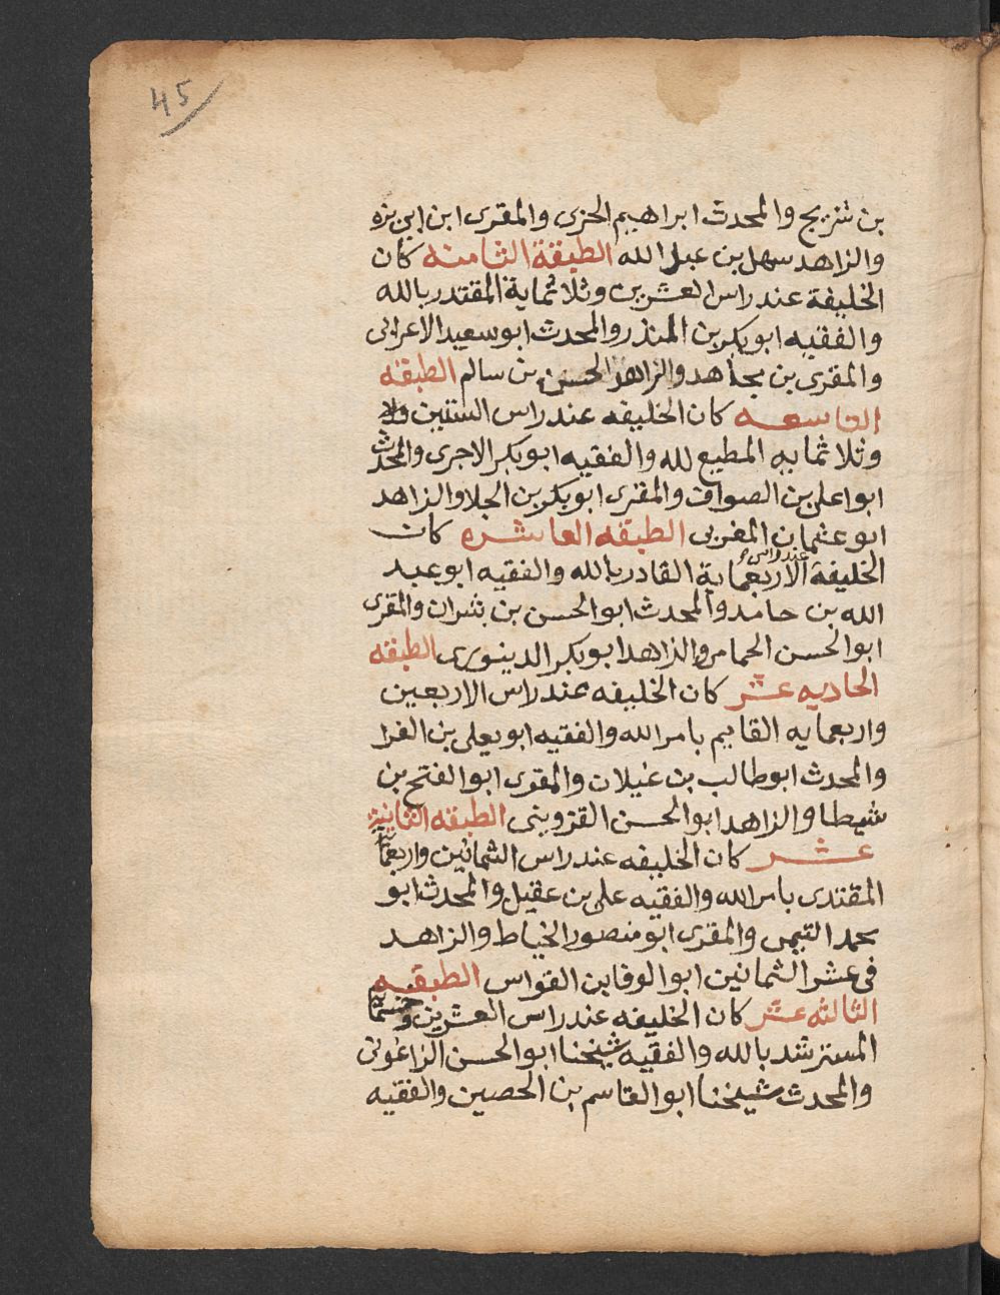 45
بن شريح والمحدث ابراهيم الحزى والمقرى ابن ابى بزه
والزاهد سهل بن عبد الله الطبقة الثامنه كان
الخليفة عند راس العشرين وثلا ثماية المقتدر بالله
والفقيه ابو بكر بن المنذر والمحدث ابو سعيد الاعرابى
والمقرى بن مجاهد والزاهد الحسن بن سالم الطبقه
التاسعه كان الخليفه عند راس الستين
وثلا ثمايه المطيع لله والفقيه ابو بكر الاجرى والمحدث
ابوا على بن الصواف والمقرى ابو بكر بن الجلا والزاهد
ابو عثمان المغربى الطبقه العاشره كان
الخليفة عند راس الاربعماية القادر بالله والفقيه ابو عبد
الله بن حامد والمحدث ابو الحسن بن بشران والمقرى
ابو الحسن الحمامى والزاهد ابو بكر الدينورى الطبقه
الحاديه عشر كان الخليفه عند راس الاربعين
واربعمايه القايم بامر الله والفقيه ابو يعلى بن الفرا
والمحدث ابو طالب بن غيلان والمقرى ابو الفتح بن
شيطا والزاهد ابو الحسن القزوينى الطبقه الثانية
عشر كان الخليفه عند راس الثمانين واربعمايه
المقتدى بامر الله والفقيه على بن عقيل والمحدث ابو
محمد التيمى والمقرى ابو منصور الخياط والزاهد
فى عشر الثمانين ابو الوفا بن القواس الطبقه
الثالثه عشر كان الخليفه عند راس العشرين وخمسما
المسترشد بالله والفقيه شيخنا ابو الحسن الزاغونى
والمحدث شيخنا ابو القاسم بن الحصين والفقيه